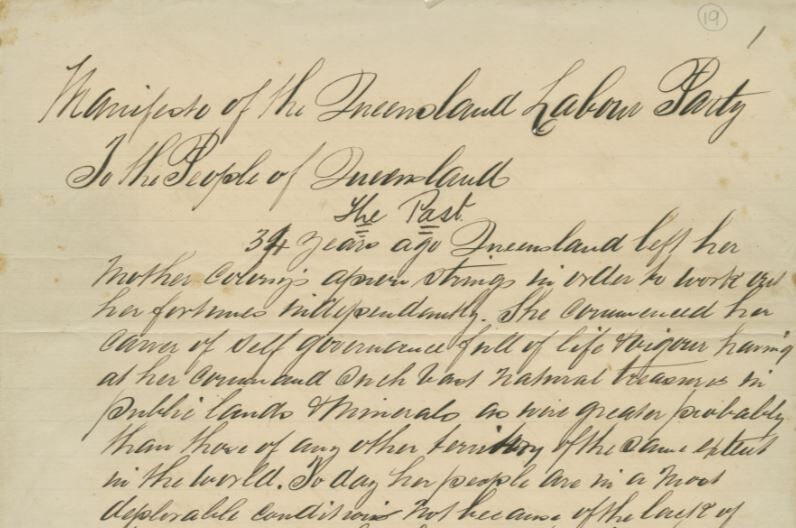 19
1
Manifesto of the Queensland Labour Party
To the People of Queensland
The Past
34 years ago Queensland left her
Mother Colony's apron strings in order to work out
her fortunes independantly. She commenced her
career of self governance full of life & vigour having
at her command such vast natural treasures in
public lands & Minerals as were greater probably
than those of any other territory of the same extent
in the world. To day her people are in a most
deplorable condition not because of the lack of